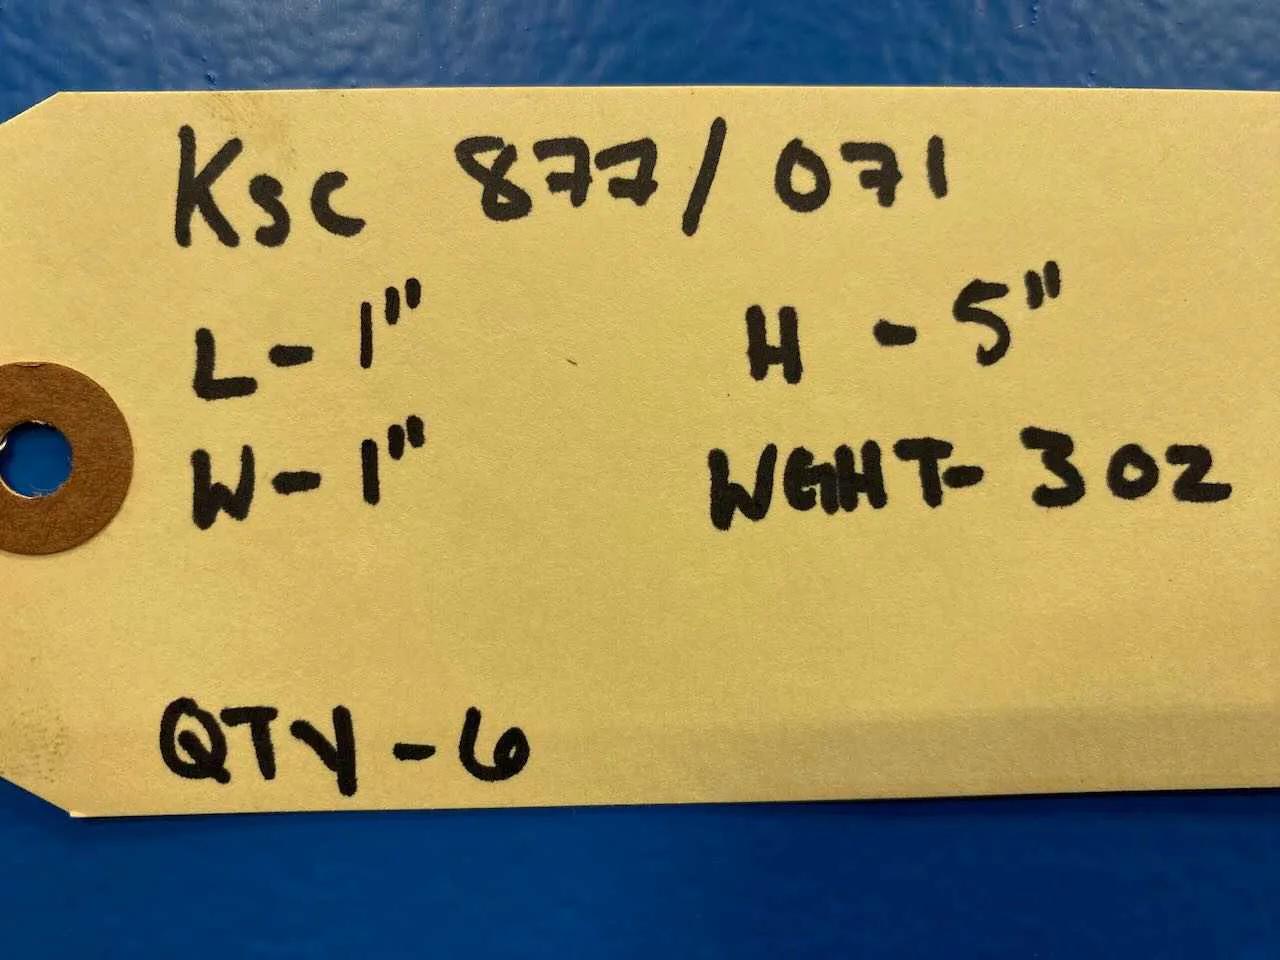 Ksc 877/071
L-1"' H - 5"
W-1"' WGHT- 3 OZ
QTY-6